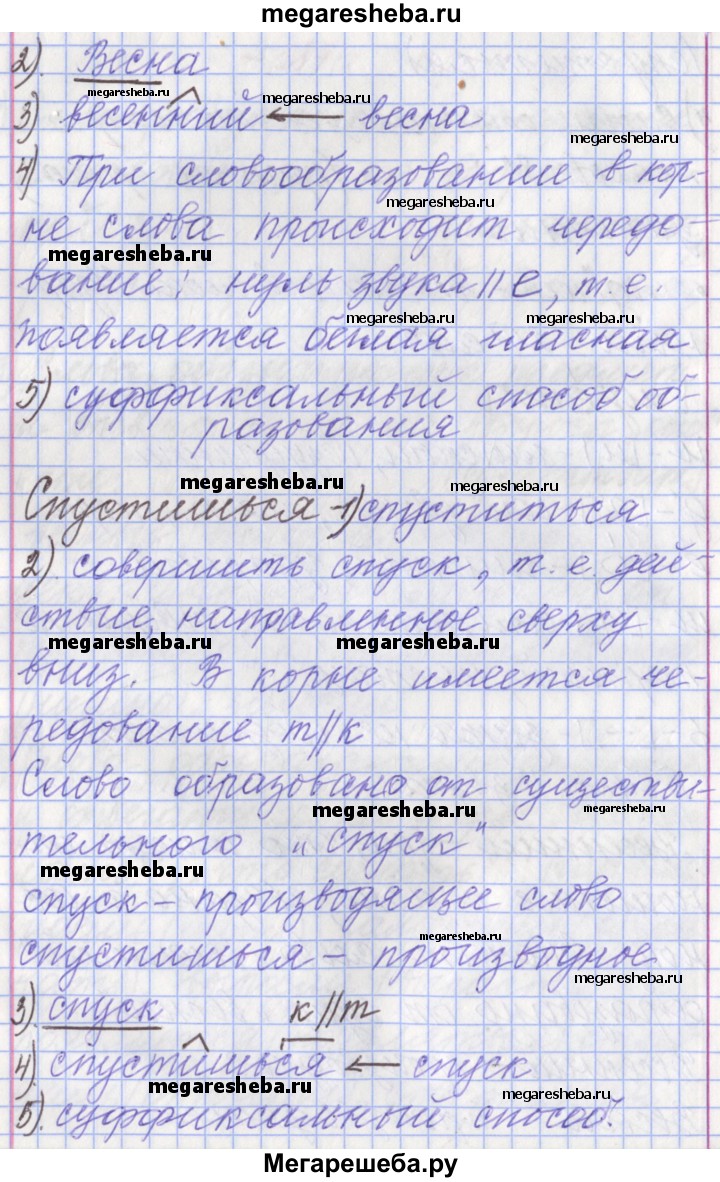 megaresheba.ru
2). Весна
megaresheba.ru
3) весенний ← весна
megaresheba.ru
megaresheba.ru
4) При словообразование в кор-
megaresheba.ru
не слова происходит чередо-
megaresheba.ru
вание: нуль звука // е, т. е.
megaresheba.ru megaresheba.ru
появляется беглая гласная
5) суффиксальный способ об-
разования
megaresheba.ru megaresheba.ru
Спустишься - 1) спуститься
2). совершить спуск, т. е. дей-
ствие, направленное сверху
megaresheba.ru megaresheba.ru
вниз. В корне имеется че-
редование т//к
Слово образовано от существи-
megaresheba.ru megaresheba.ru
тельного "спуск"
megaresheba.ru
спуск - производящее слово
megaresheba.ru
спустишься - производное
megaresheba.ru
3). спуск к//т
4). спустишься ← спуск
megaresheba.ru megaresheba.ru
5). суффиксальный способ.
Мегарешеба.ру